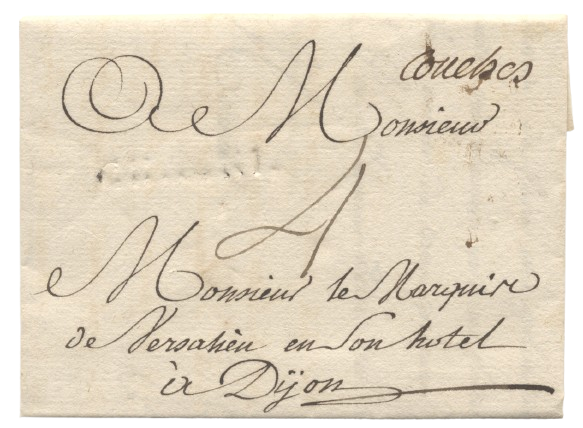 Couches
A Monsieur
4
Monsieur le Marquis
de Versalieu en Son hotel
à Dijon